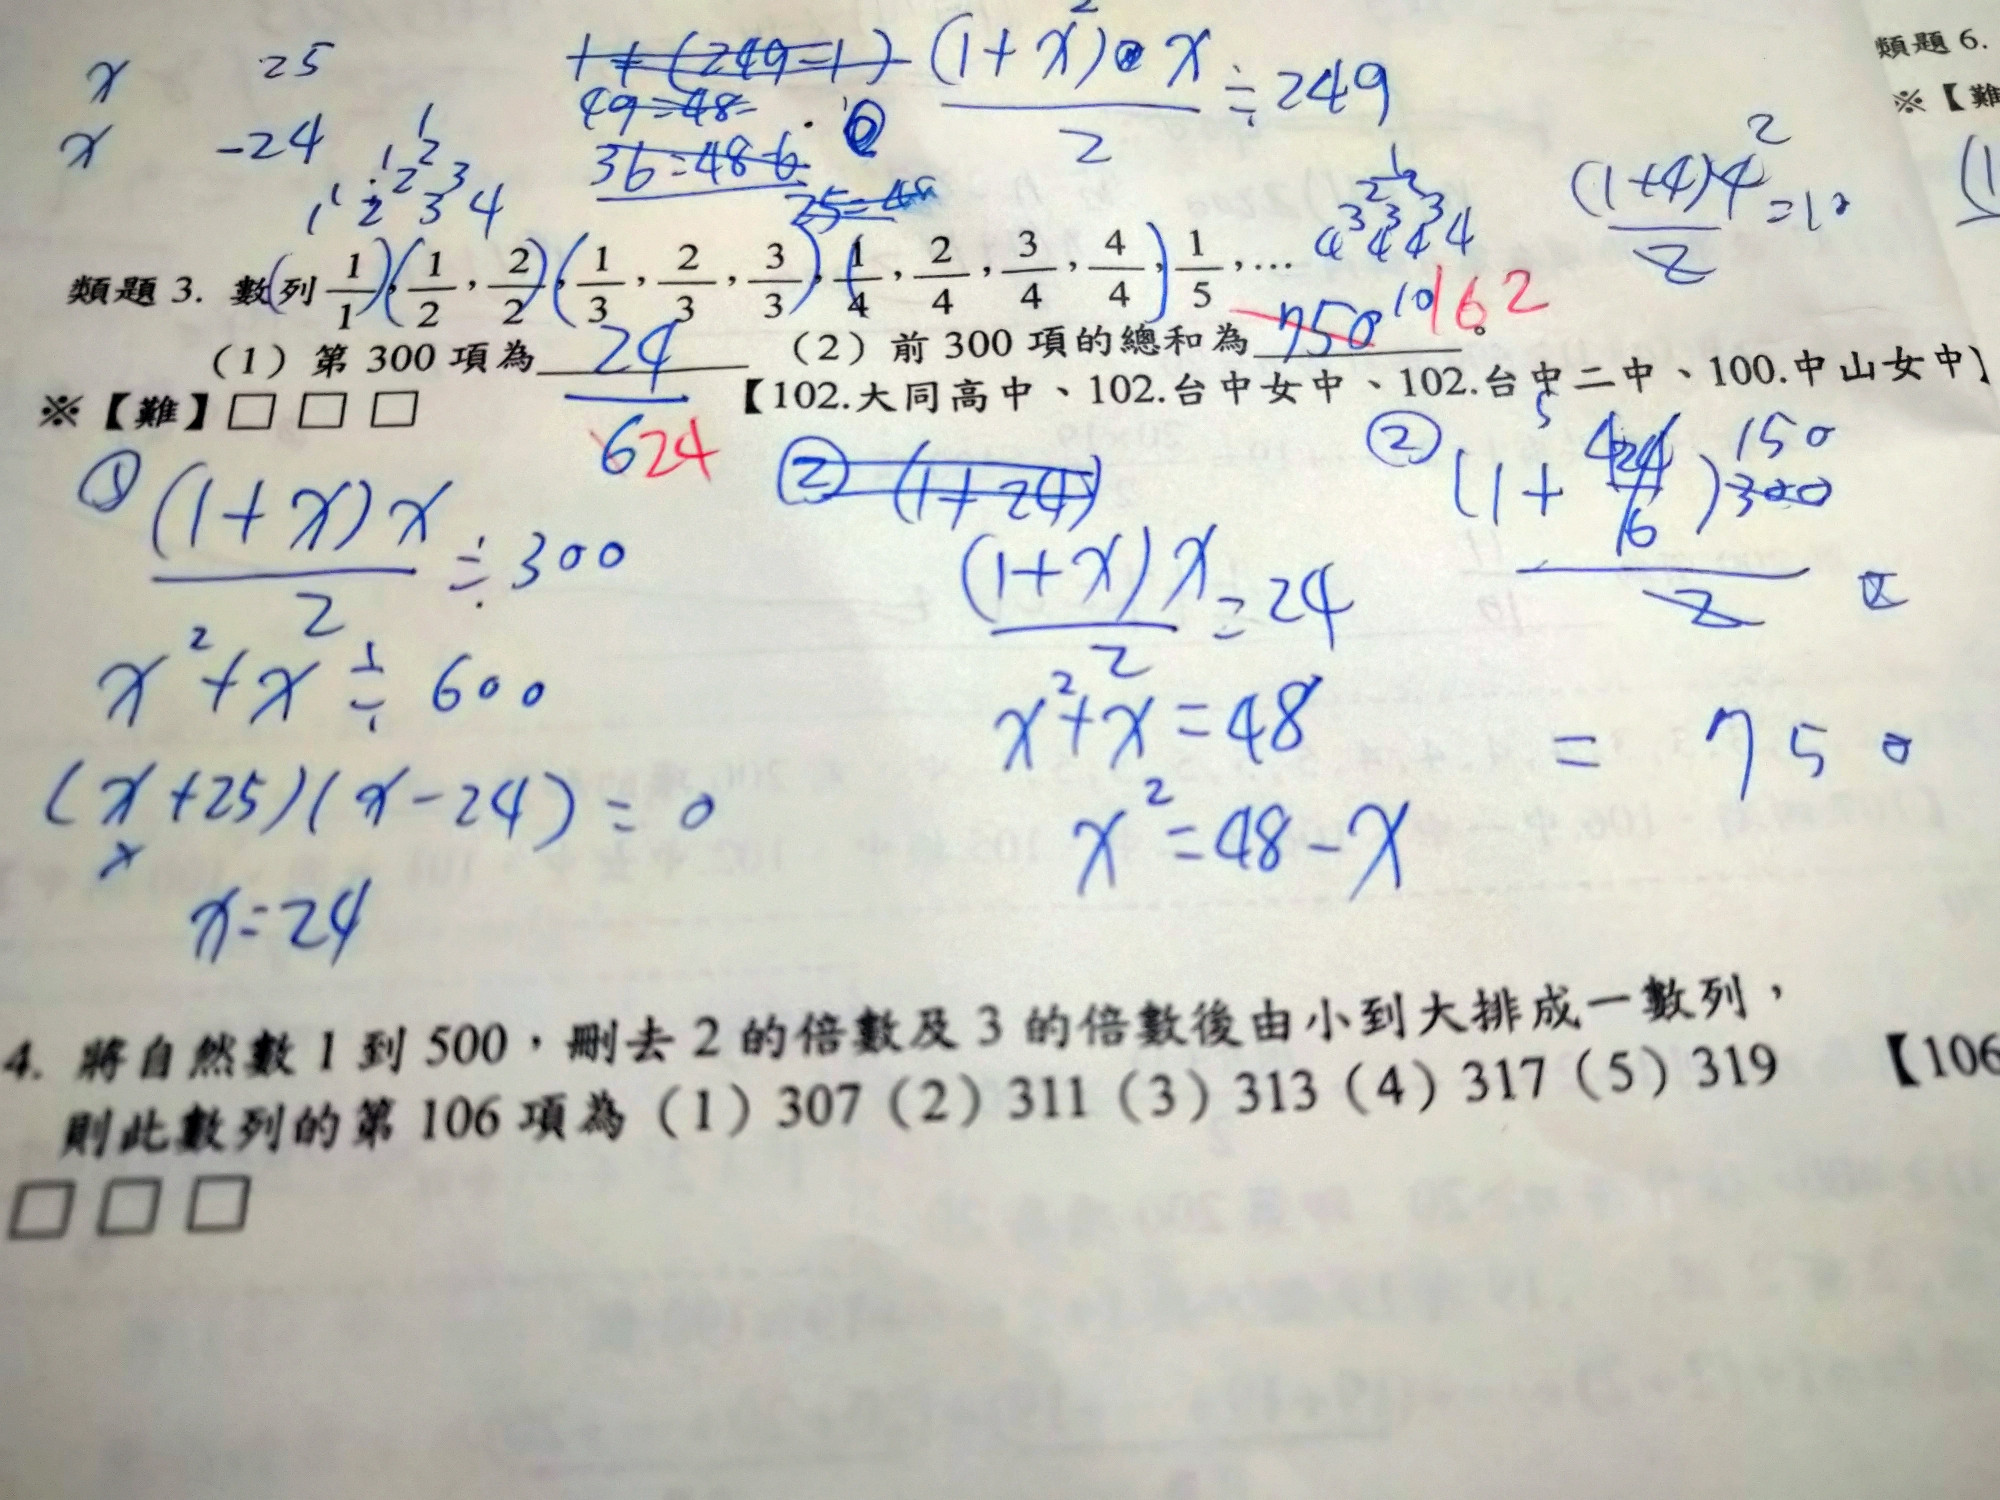 x 25
x -24
1
1 2
1 2 3
1 2 3 4
1+(249-1)
49=48-
36=48-6
25=48
(1+x²)·x/2 ≒ 249
(1+4)4²/2 = 10
類題 6.
※【難
類題 3. 數列 1/1, 1/2, 2/2, 1/3, 2/3, 3/3, 1/4, 2/4, 3/4, 4/4, 1/5, …
(1) 第 300 項為 24/624 (2) 前 300 項的總和為 750 162。
※【難】□ □ □ 【102.大同高中、102.台中女中、102.台中二中、100.中山女中】
① (1+x)x/2 ≒ 300
x²+x ≒ 600
(x+25)(x-24)=0
x
x=24
② (1+24)
(1+x)x/2 = 24
x²+x=48
x²=48-x
② (1+24/6)300/2
150
= 750
4. 將自然數 1 到 500,刪去 2 的倍數及 3 的倍數後由小到大排成一數列,
則此數列的第 106 項為 (1) 307 (2) 311 (3) 313 (4) 317 (5) 319 【106
□ □ □